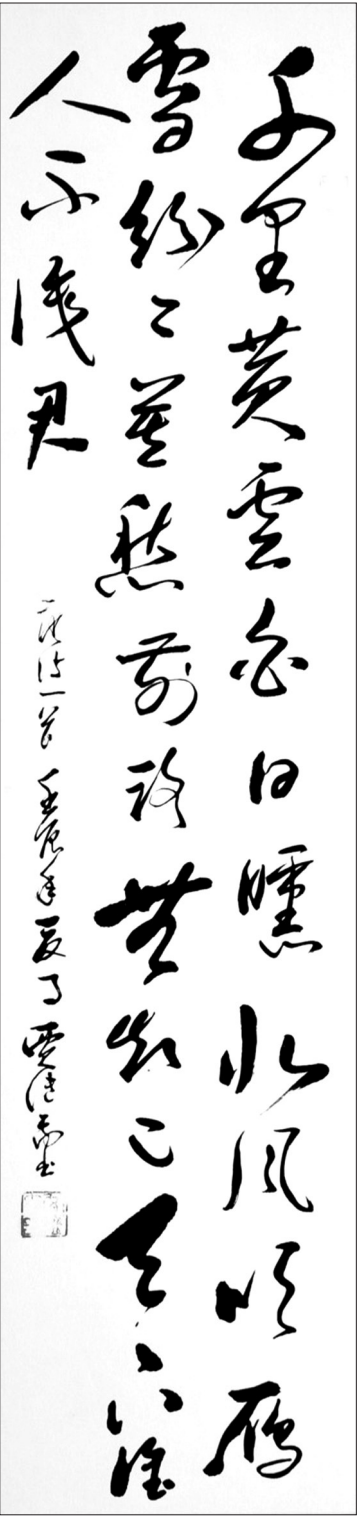 千里黄雲白日曛北风吹雁
雪紛々莫愁前路無知己天下誰
人不識君
詩一首 壬辰年夏月